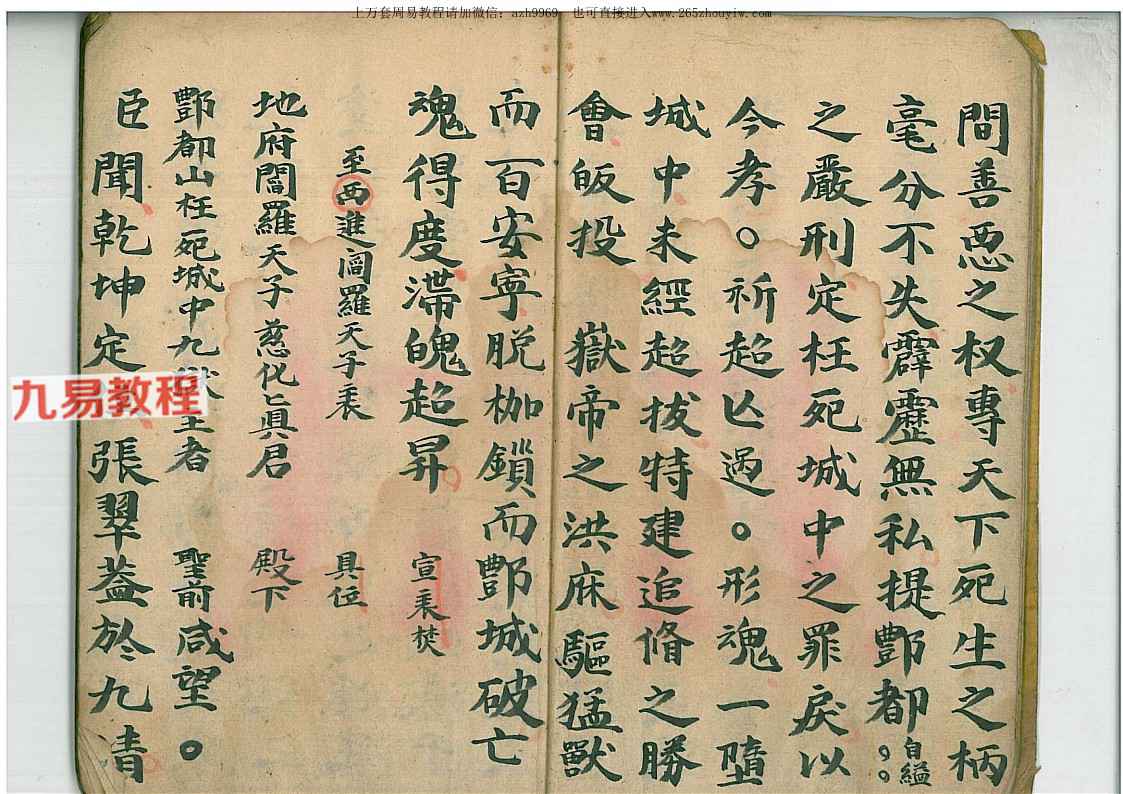 上万套周易教程请加微信：azh9969，也可直接进入www.265zhouyiw.com
間善惡之权專天下死生之柄
毫分不失霹靂無私提酆都自縊
之嚴刑定枉死城中之罪戾以
今孝。祈超亾過。形魂一墮
城中未經超拔特建追脩之勝
會皈投　嶽帝之洪庥驅猛獸
而百安寧脫枷鎖而酆城破亡
魂得度滯魄超昇　宣表焚
至西進閻羅天子表　具位
地府閻羅天子慈化真君　殿下
酆都山枉死城中九主者　聖前咸望。
臣聞乾坤定張翠蓋於九清
九易教程